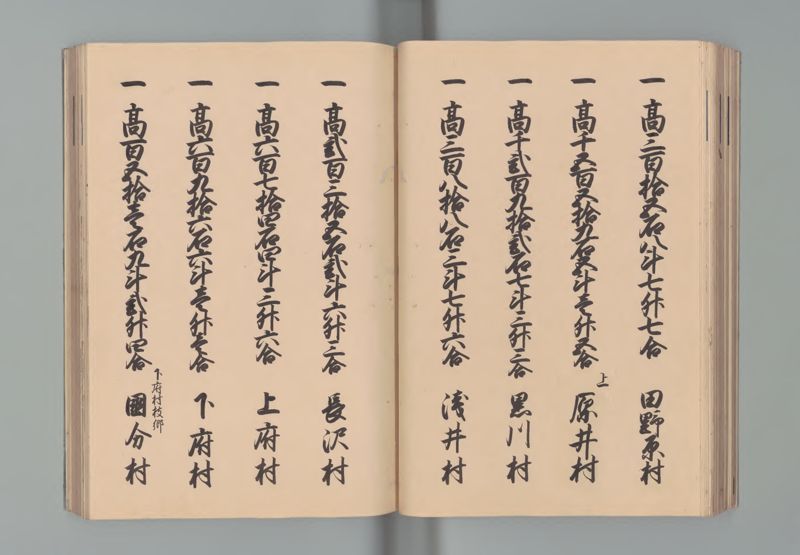 一 高三百拾五石八斗七升七合 田野原村
一 高千五百五拾九石五斗壱升五合 上 原井村
一 高千弐百九拾弐石七斗三升三合 黒川村
一 高三百八拾八石三斗七升六合 浅井村
一 高弐百三拾五石弐斗六升三合 長沢村
一 高六百七拾四石四斗三升六合 上府村
一 高六百九拾六石六斗壱升壱合 下府村
下府村枝郷
一 高百五拾壱石九斗弐升四合 國分村